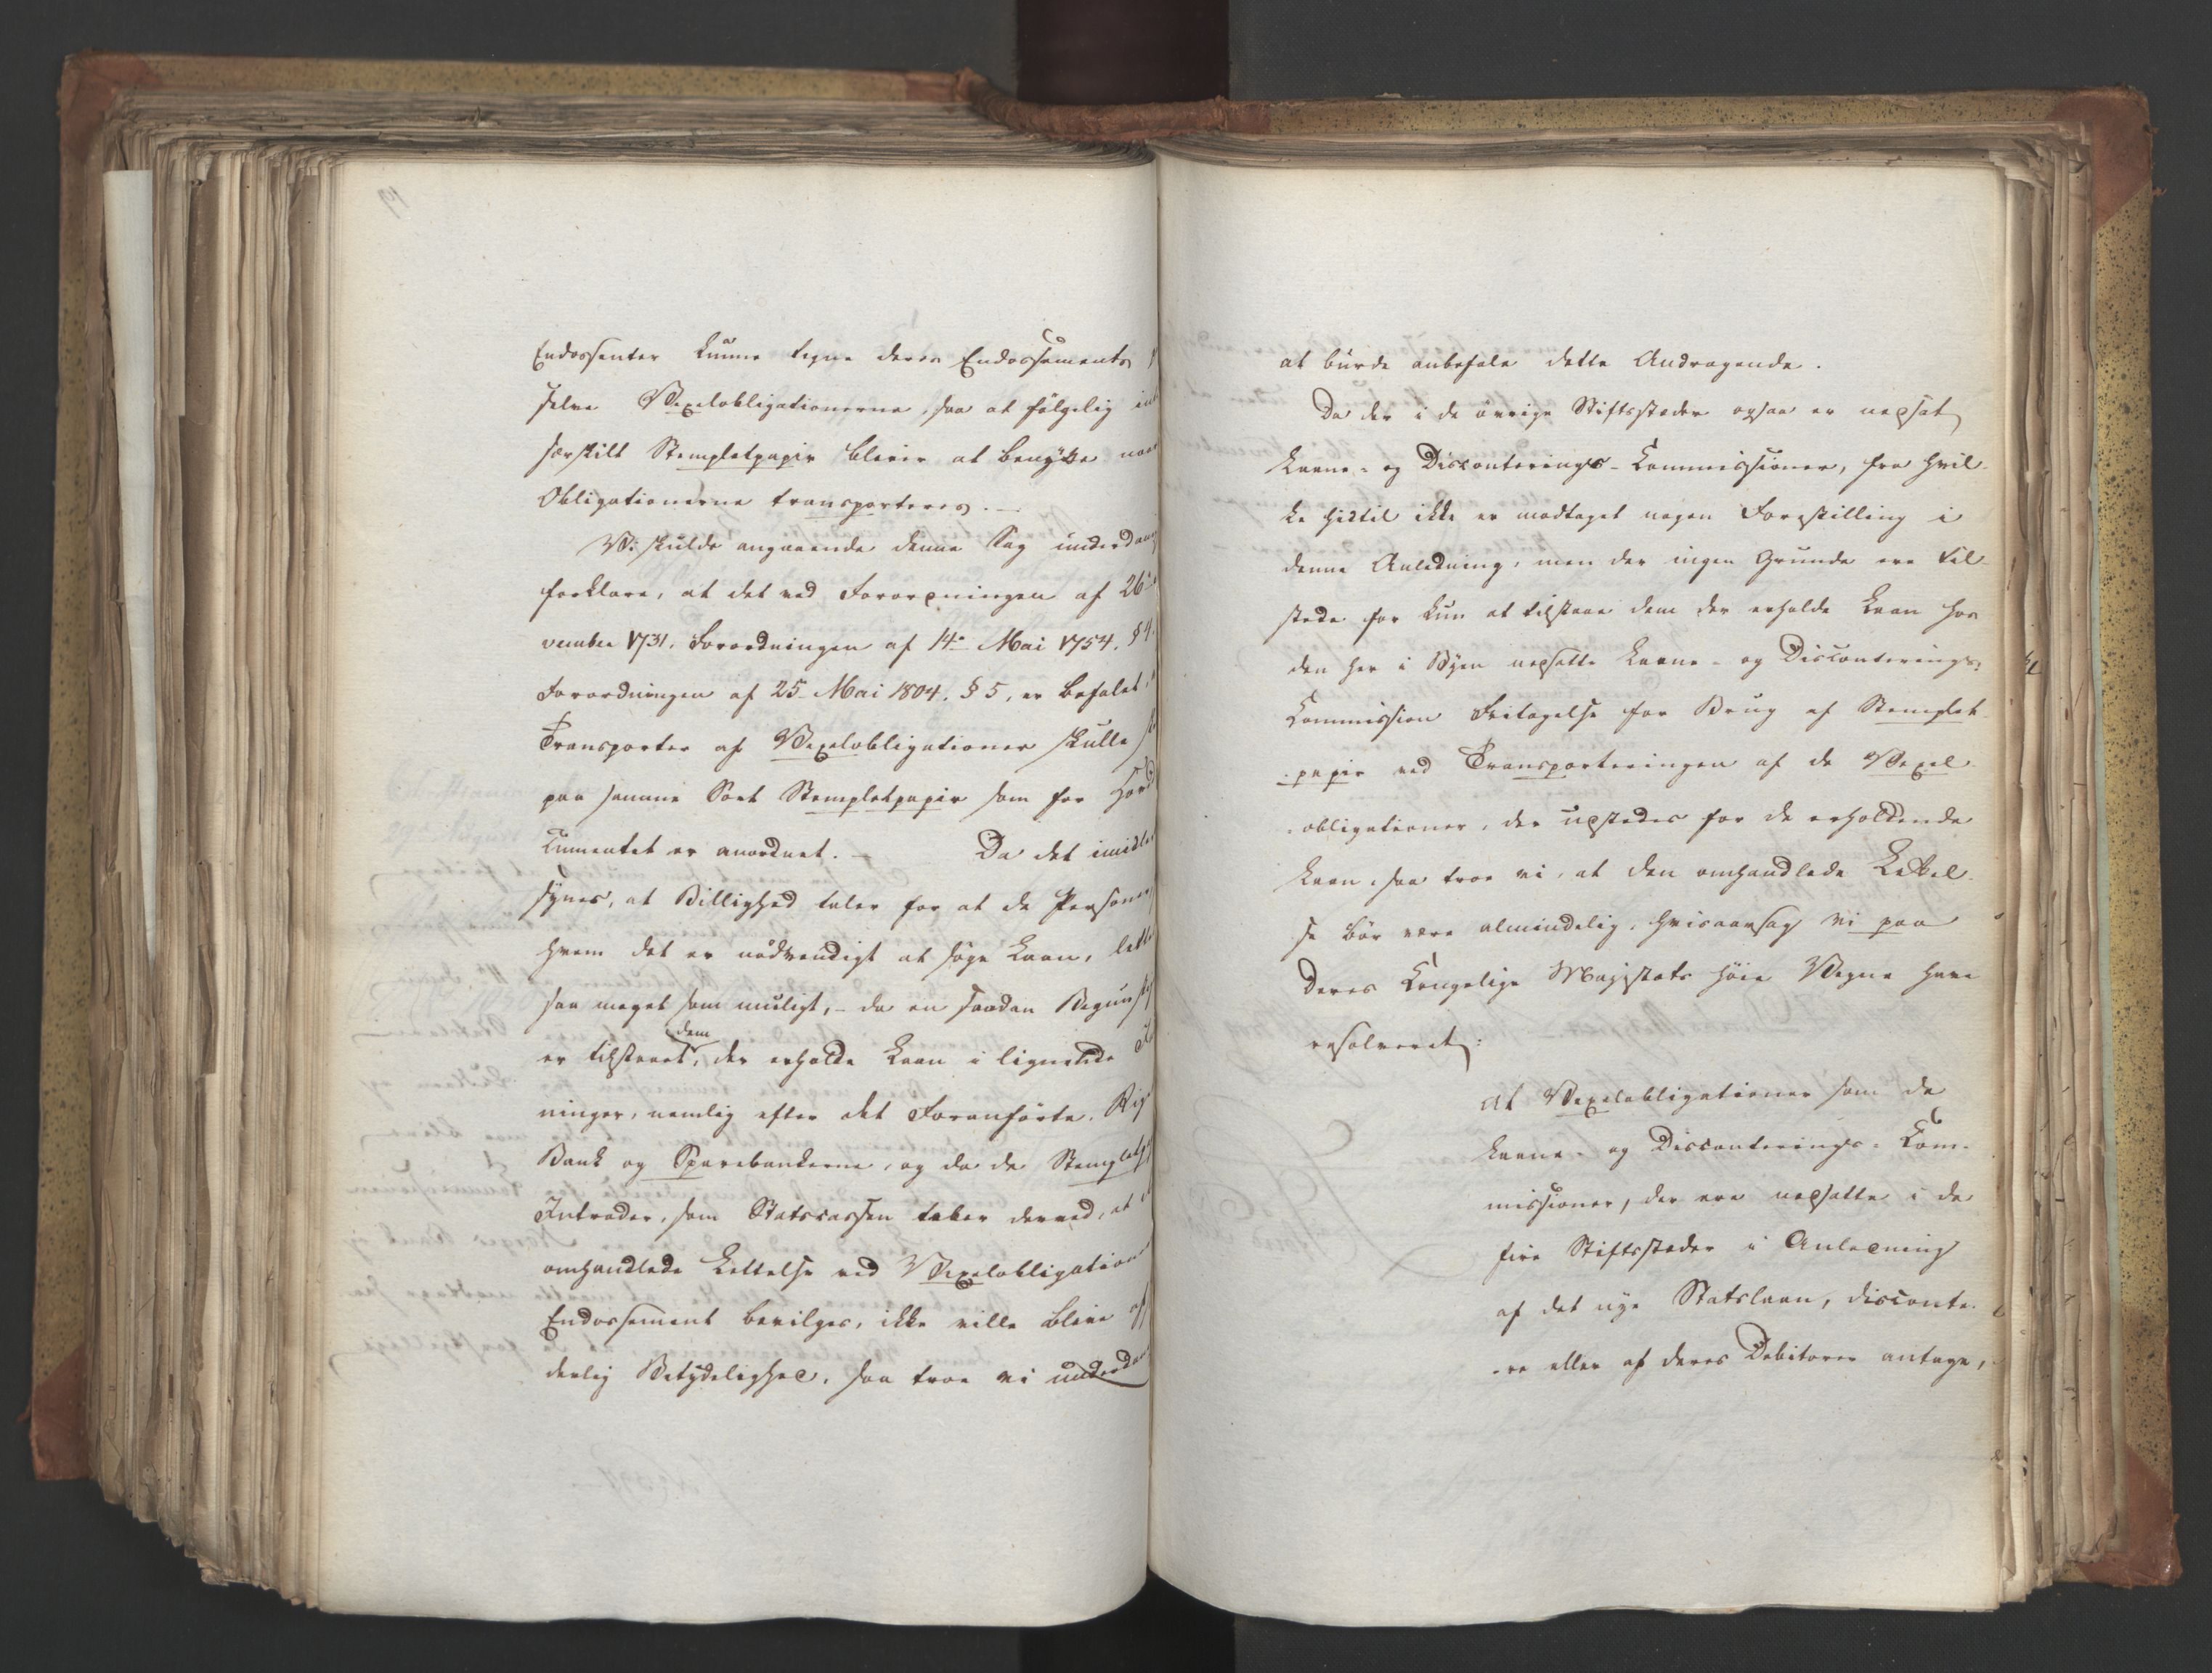 Endossenter kunne tegne deres Endossements
selve Vexelobligationerne, saa at følgelig
særskilt Stempletpapir bliver at benytte naar
Obligationerne transporteres. —
Vi skulde angaaende denne Sag underdan
forklare, at det ved Forordningen af 26
vember 1731. Forordningen af 14de Mai 1754. § 4.
Forordningen af 25 Mai 1804. § 5, er befalet
Transporter af Vexelobligationer skulle
paa samme Sort Stempletpapir som for Hoved
kumentet er anordnet. — Da det imidler
synes, at Billighed taler for at de Personer
hvem det er nødvendigt at søge Laan, lette
saa meget som muligt, – da en saadan Begunst
er tilstaaet dem, der erholde Laan i lignende
ninger, nemlig efter det Foranførte. Rigs
Bank og Sparebankerne, og da de Stemplet
Intrader, som Statscassen taber derved, at
omhandlede Lettelse ved Vexelobligation
Endossement bevilges, ikke ville blive af
derlig Betydelighed, saa troe vi underdan
at burde anbefale dette Andragende.
Da der i de øvrige Stiftsstæder ogsaa er nedsat
Laane- og Disconterings-Commissioner, fra hvil-
ke hidtil ikke er modtaget nogen Forestilling i
denne Anledning, men der ingen Grunde ere til-
stede for kun at tilstaae dem der erholde Laan hos
den her i Byen nedsatte Laane- og Disconterings-
Commission Fritagelse for Brug af Stemplet-
-papir ved Transporteringen af de Vexel-
-obligationer, der udstedes for de erholdende
Laan, saa troe vi, at den omhandlede Lettel-
se bør være almindelig, hvisaarsag vi paa
Deres Kongelige Majestæts høie Vegne have
resolveret:
At Vexelobligationer som de
Laane- og Disconterings-Com-
missioner, der ere nedsatte i de
fire Stiftsstæder i Anledning
af det nye Statslaan, disconte-
-re eller af deres Debitorer antage,